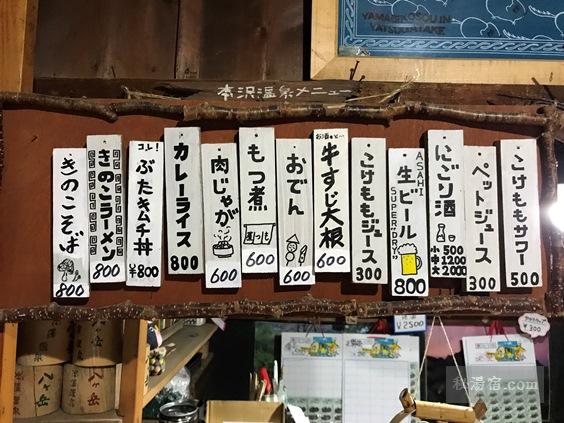 YAMABIKOSOU IN
YATSUGATAKE
本沢温泉メニュー
こけももサワー
500
ペットジュース
300
にごり酒
小 500
中 1200
大 2000
ASAHI
生ビール
SUPER "DRY"
800
こけももジュース
300
お酒のとも…
牛すじ大根
600
おでん
600
もつ煮
600
肉じゃが
600
カレーライス
800
コレ!
ぶたキムチ丼
¥800
きのこラーメン
800
きのこそば
800
¥2500
¥300
八ヶ岳
八ヶ岳
秘湯宿.com